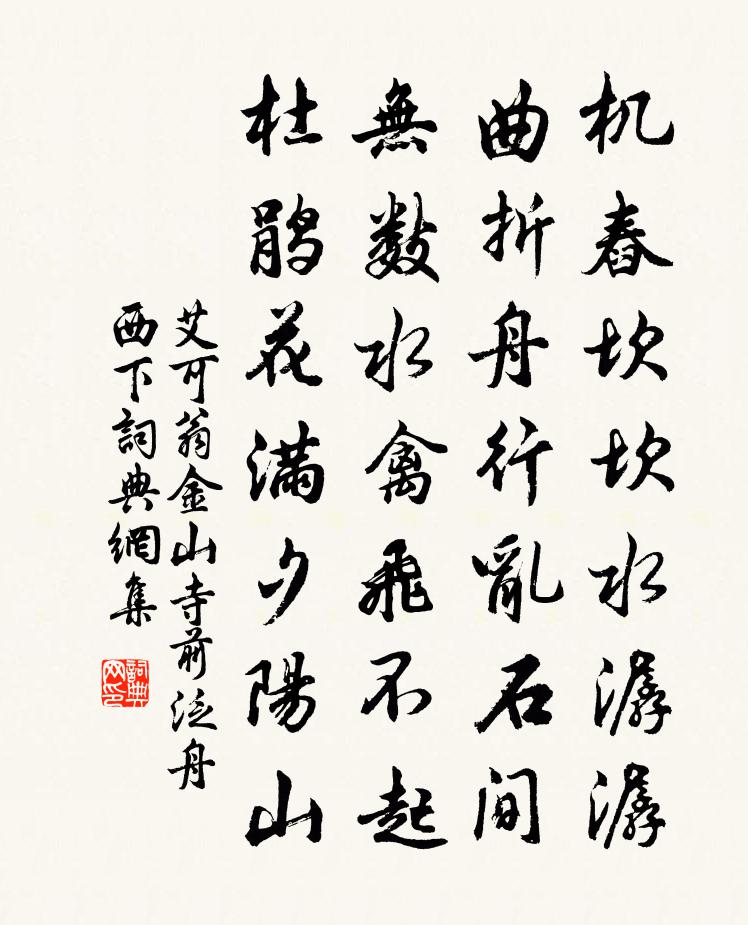 机舂坎坎水潺潺
曲折舟行亂石间
無数水禽飛不起
杜鹃花满夕陽山
艾可翁金山寺前泛舟
西下詞典網集
詞典网印